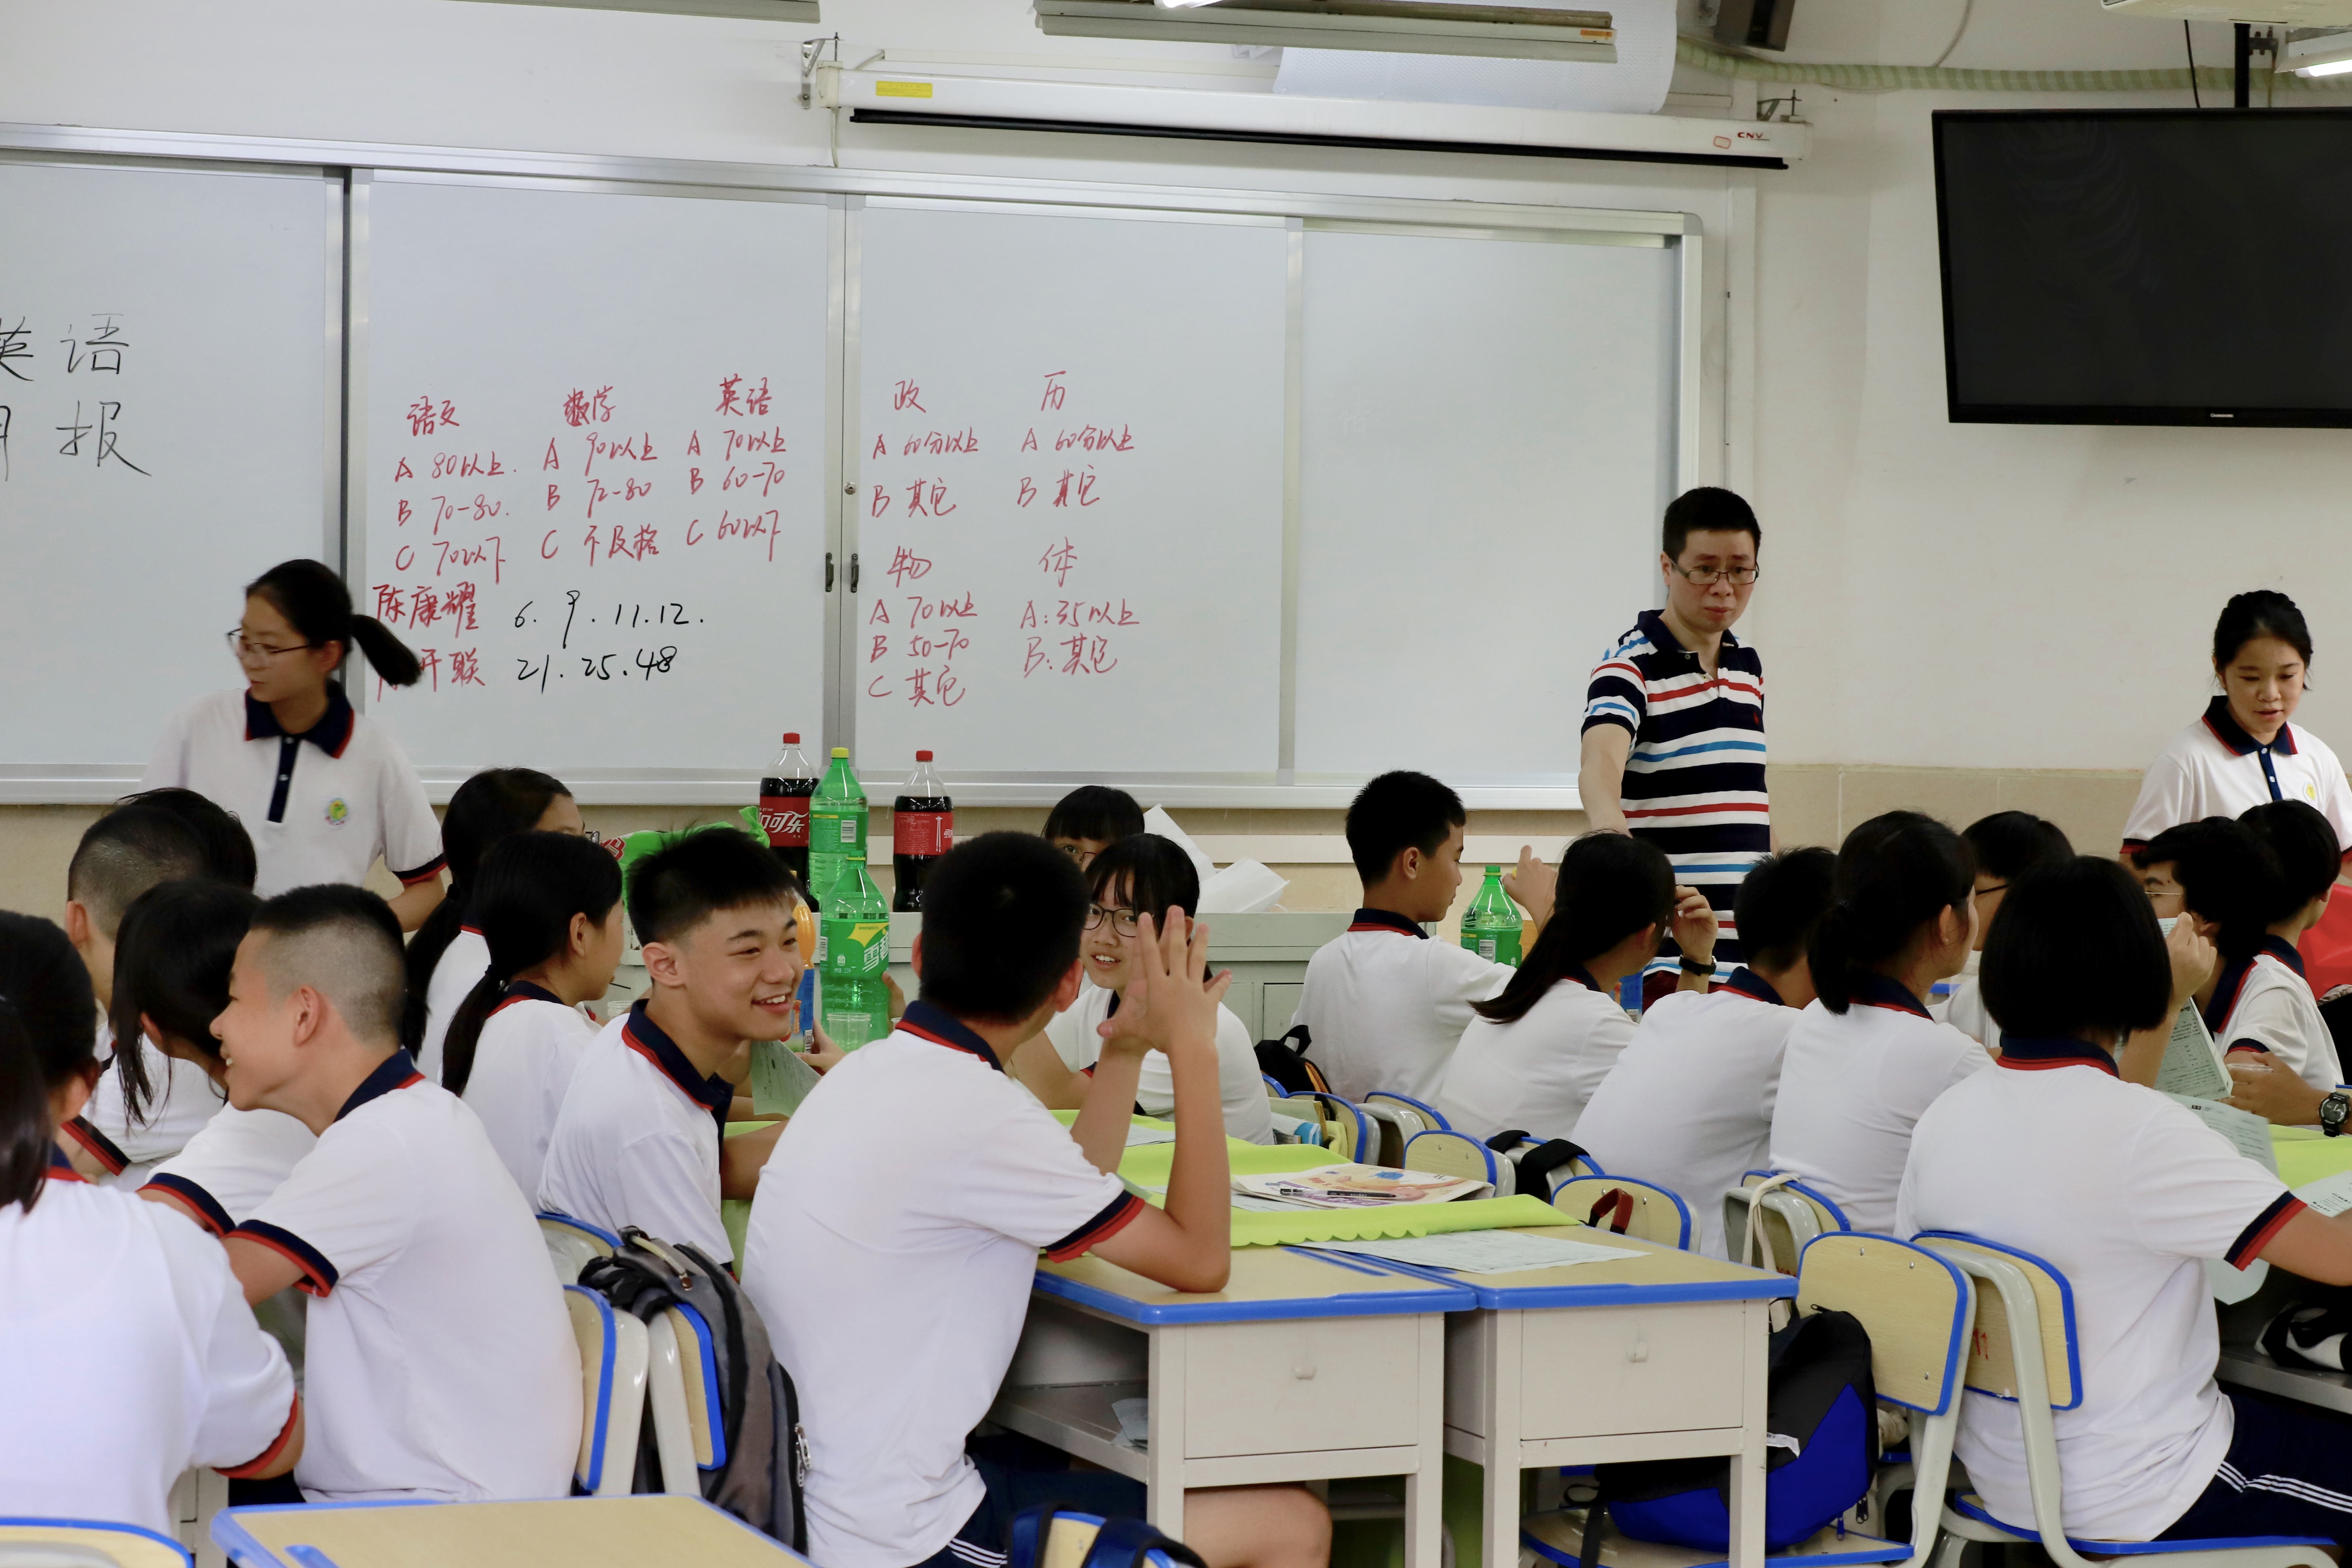 英语
报
语文
A 80以上.
B 70-80.
C 70以下
数学
A 90以上
B 72-80
C 不及格
英语
A 70以上
B 60-70
C 60以下
陈康耀 6. 9. 11. 12.
开联 21. 25. 48
政
A 60分以上
B 其它
历
A 60分以上
B 其它
物
A 70以上
B 50-70
C 其它
体
A: 35以上
B: 其它
CNV
CHANGHONG
可乐
雪